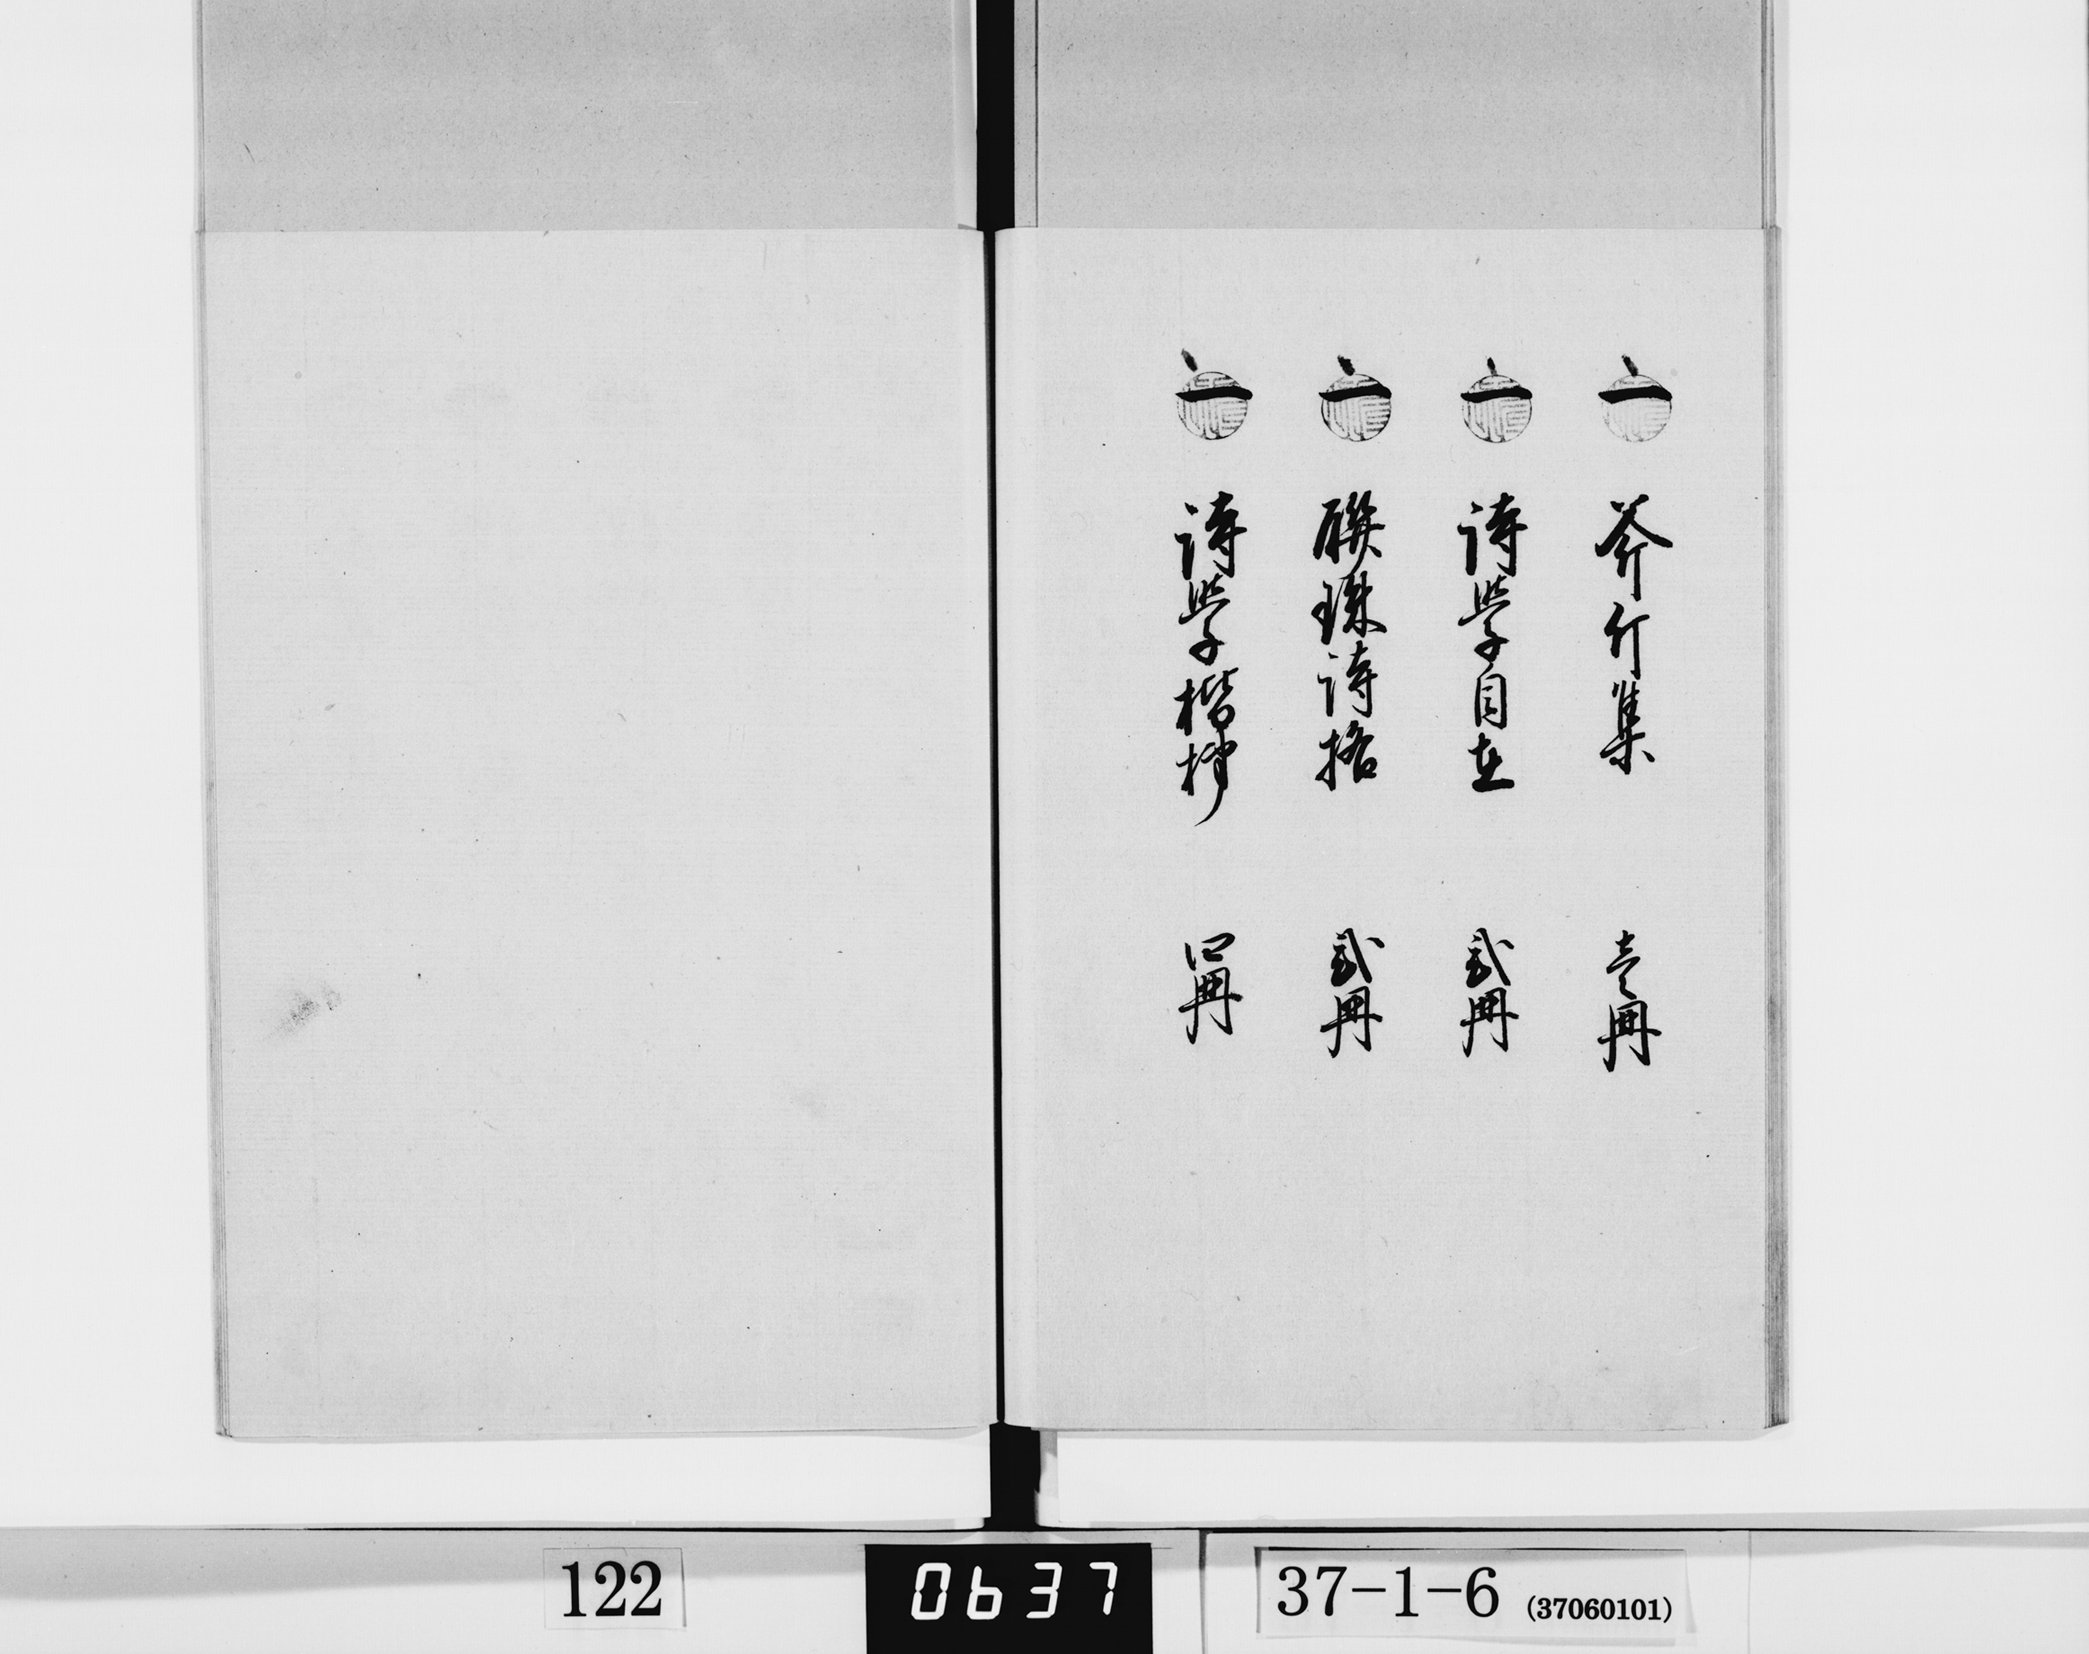 一 斧斤集 壱冊
一 詩学自在 弐冊
一 聯珠詩格 弐冊
一 詩学楷梯 四冊
122
0637
37-1-6 (37060101)